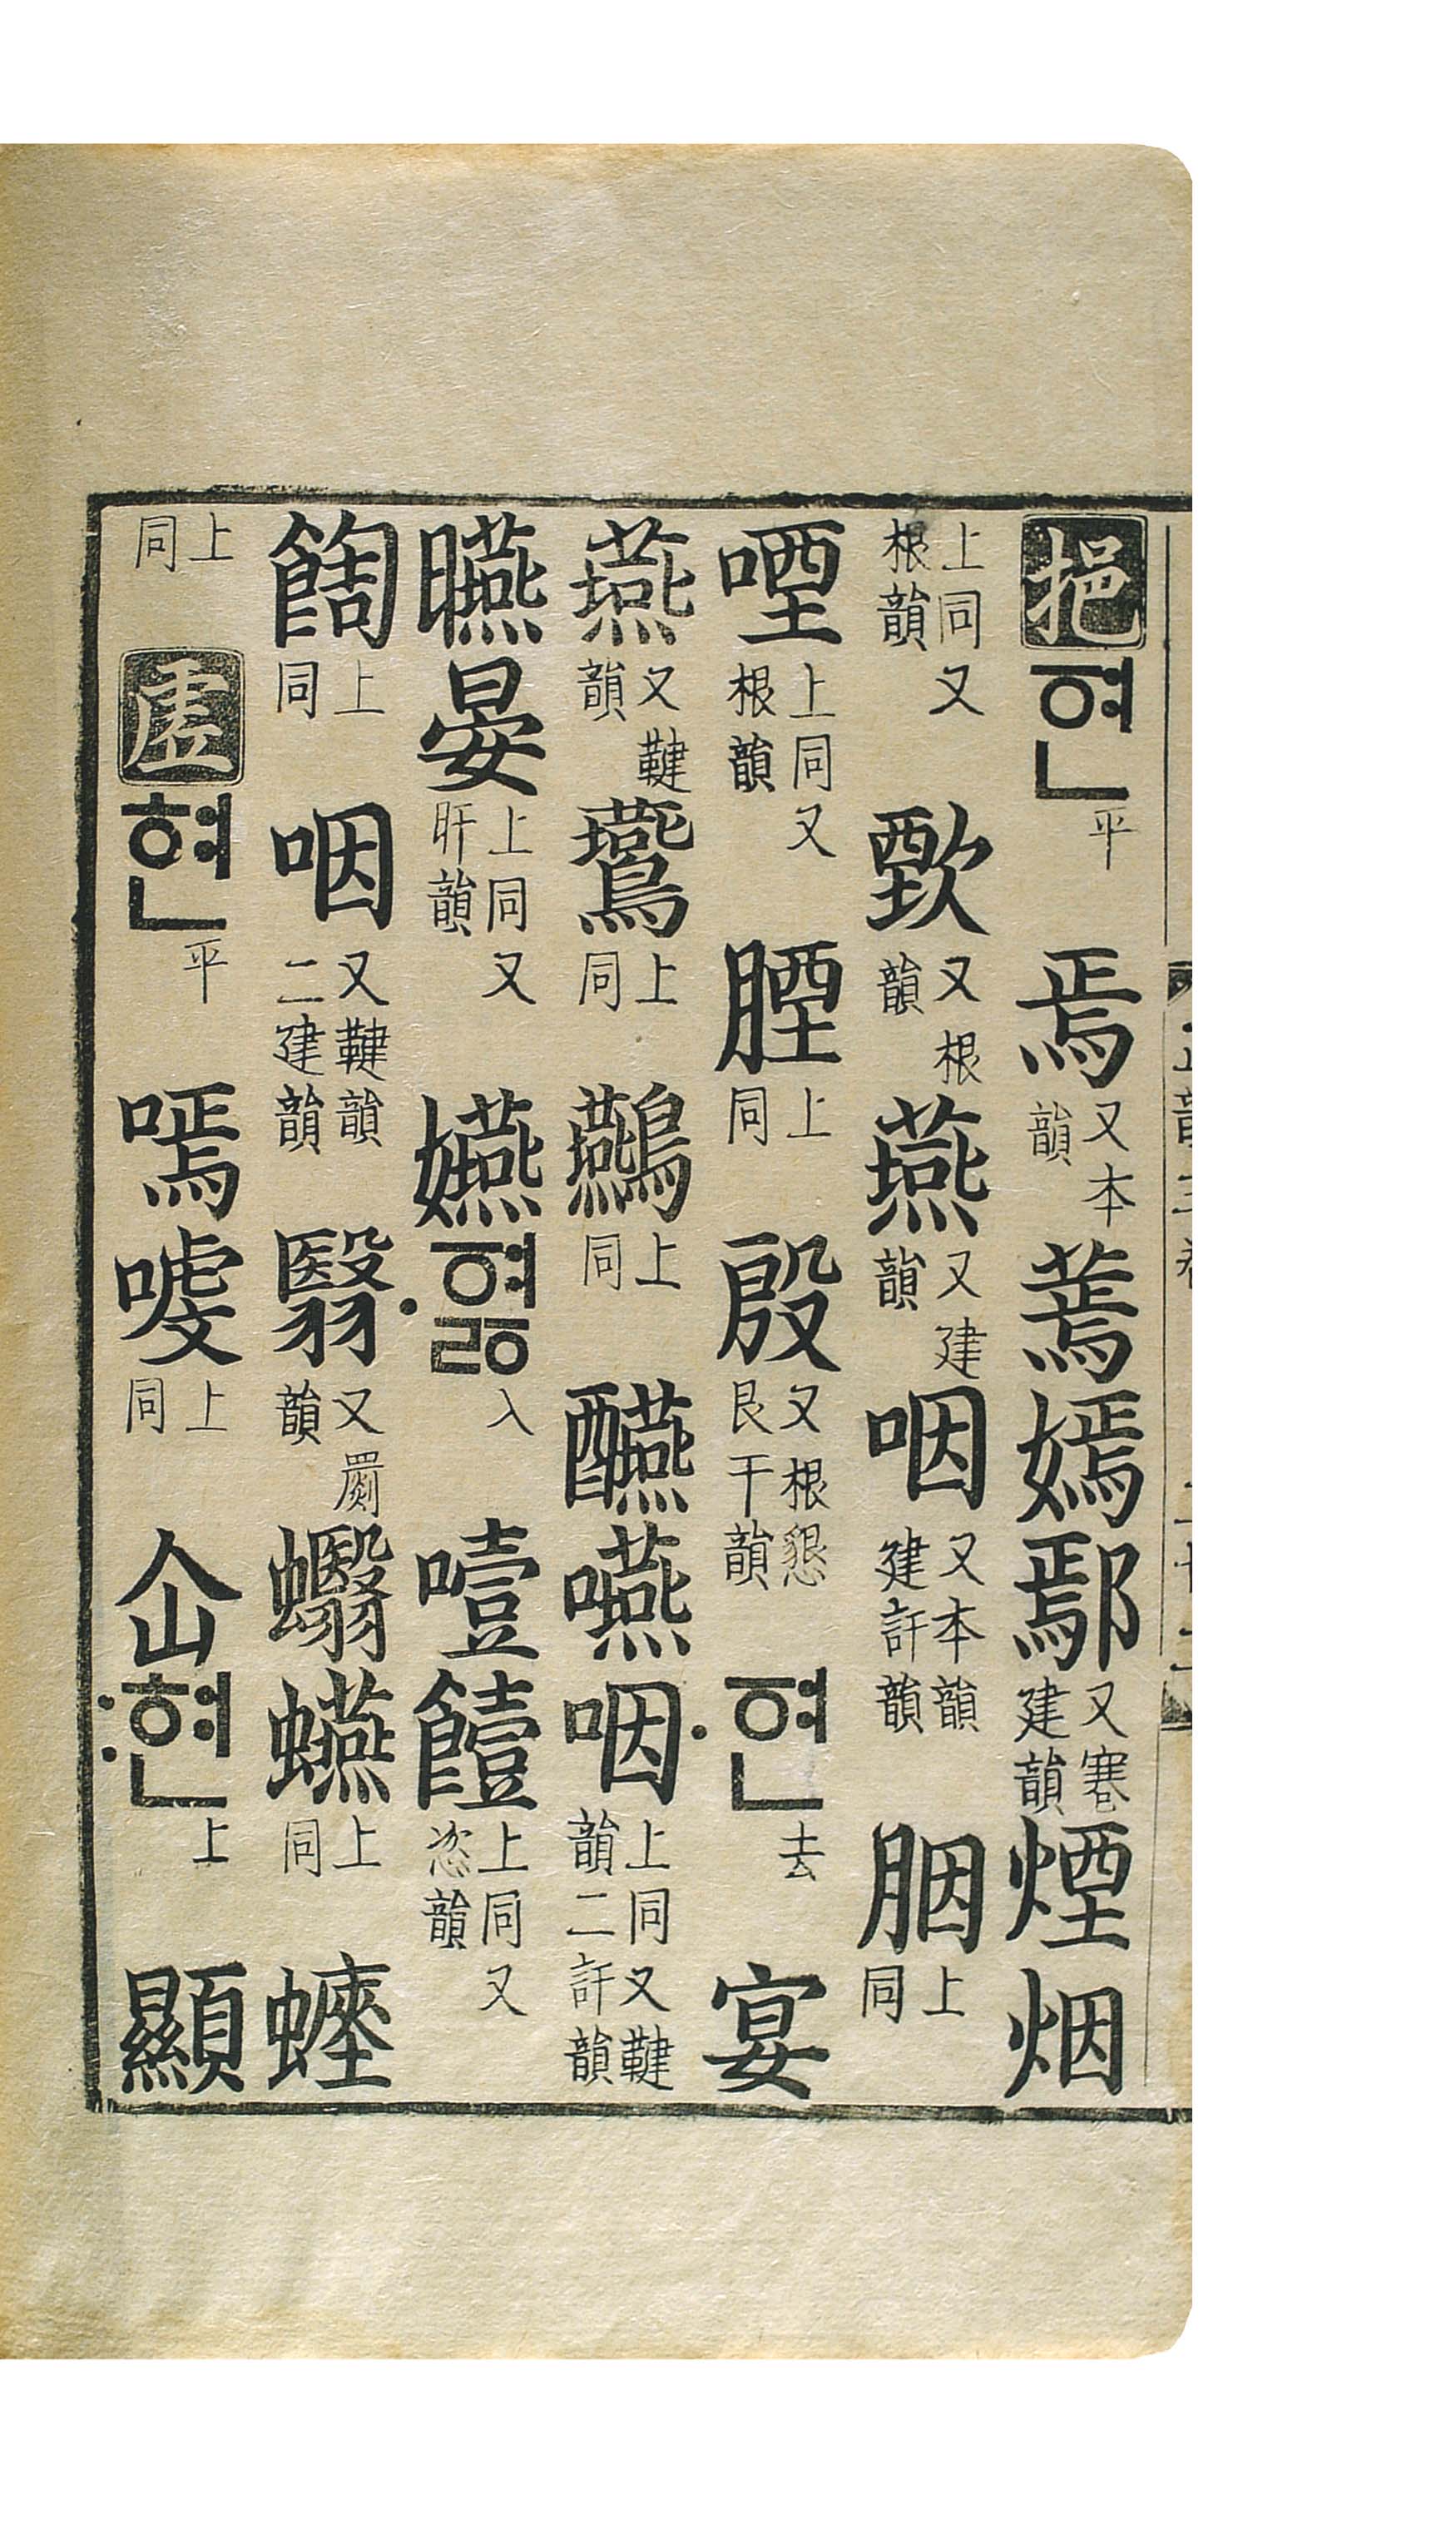 挹ᅙᅧᆫ平焉又本韻蔫嫣鄢又寋建韻煙烟
上同又根韻歅又根韻燕又建韻咽又本韻建訐韻胭上同
㖶上同又根韻上同殷又根懇艮干韻ᅙᅧᆫ〮去宴
燕又鞬韻鷰上同上同醼嚥咽上同又鞬韻二訐韻
曣晏上同又旰韻嬿ᅙᅧᇙ〮入噎饐上同又恣韻
上同咽又鞬韻二建韻翳又罽韻上同
上同虛현平嘕上同仚현〯上顯